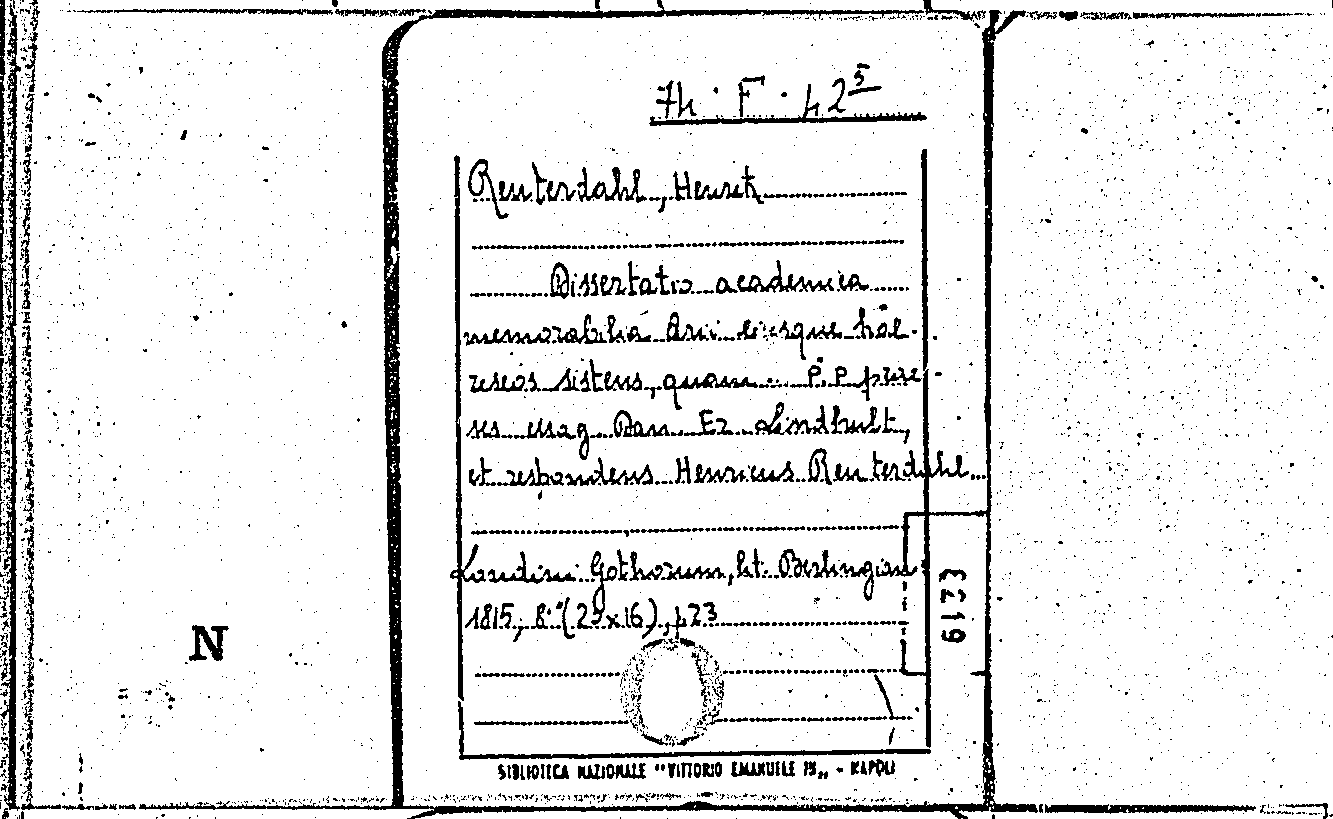 7h · F · 42⁵
Reuterdahl, Henrik
Dissertatio academica
memorabilia Arii eiusque hae-
reseos sistens, quam .. P. P. prae-
ses mag Dan Ez Lindhult,
et respondens Henricus Reuterdahl..
Londini Gothorum, lit. Berlingian
1815, 8° (23x16), p 23
N
6193
BIBLIOTECA NAZIONALE "VITTORIO EMANUELE III„ - NAPOLI